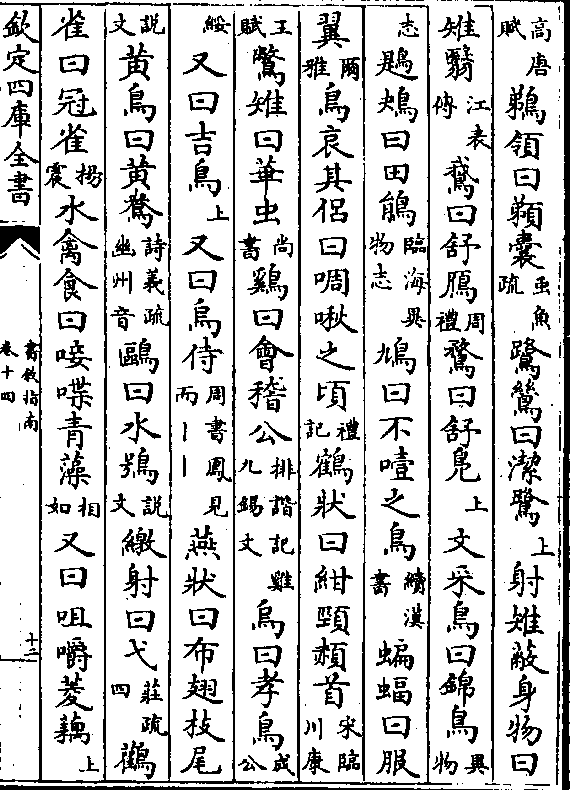 高唐賦鵜領曰囊䖝魚疏鷺鷥曰潔鷺上射雉蔽身物曰
雉翳江表傳鵞曰舒鴈周禮鶩曰舒鳬上文采鳥曰錦鳥異物
志鶗鴂曰田鵑臨海異物志鳩曰不噎之鳥續漢書蝙蝠曰服
翼爾雅鳥哀其侶曰啁啾之頃禮記鶴狀曰紺頸頳首宋臨川康
王賦驚雉曰華虫尚書鷄曰會稽公排諧記雞九錫文烏曰孝鳥成公
綏又曰吉鳥上又曰烏侍周書鳳見而丨丨燕狀曰布翅枝尾
說文黄鳥曰黄鶖詩義疏幽州音鷗曰水鴞說文繳射曰弋莊疏四鸛
雀曰冠雀楊震水禽食曰唼喋青藻相如又曰咀嚼菱藕上
欽定四庫全書
書敘指南
卷十四
十二